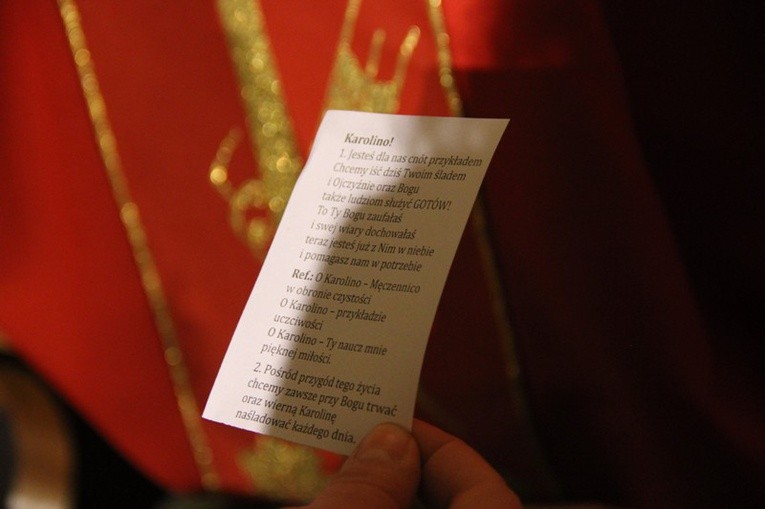 Karolino!
1. Jesteś dla nas cnót przykładem
Chcemy iść dziś Twoim śladem
i Ojczyźnie oraz Bogu
także ludziom służyć GOTÓW!
To Ty Bogu zaufałaś
i swej wiary dochowałaś
teraz jesteś już z Nim w niebie
i pomagasz nam w potrzebie
Ref.: O Karolino – Męczennico
w obronie czystości
O Karolino – przykładzie
uczciwości
O Karolino – Ty naucz mnie
pięknej miłości.
2. Pośród przygód tego życia
chcemy zawsze przy Bogu trwać
oraz wierną Karolinę
naśladować każdego dnia.